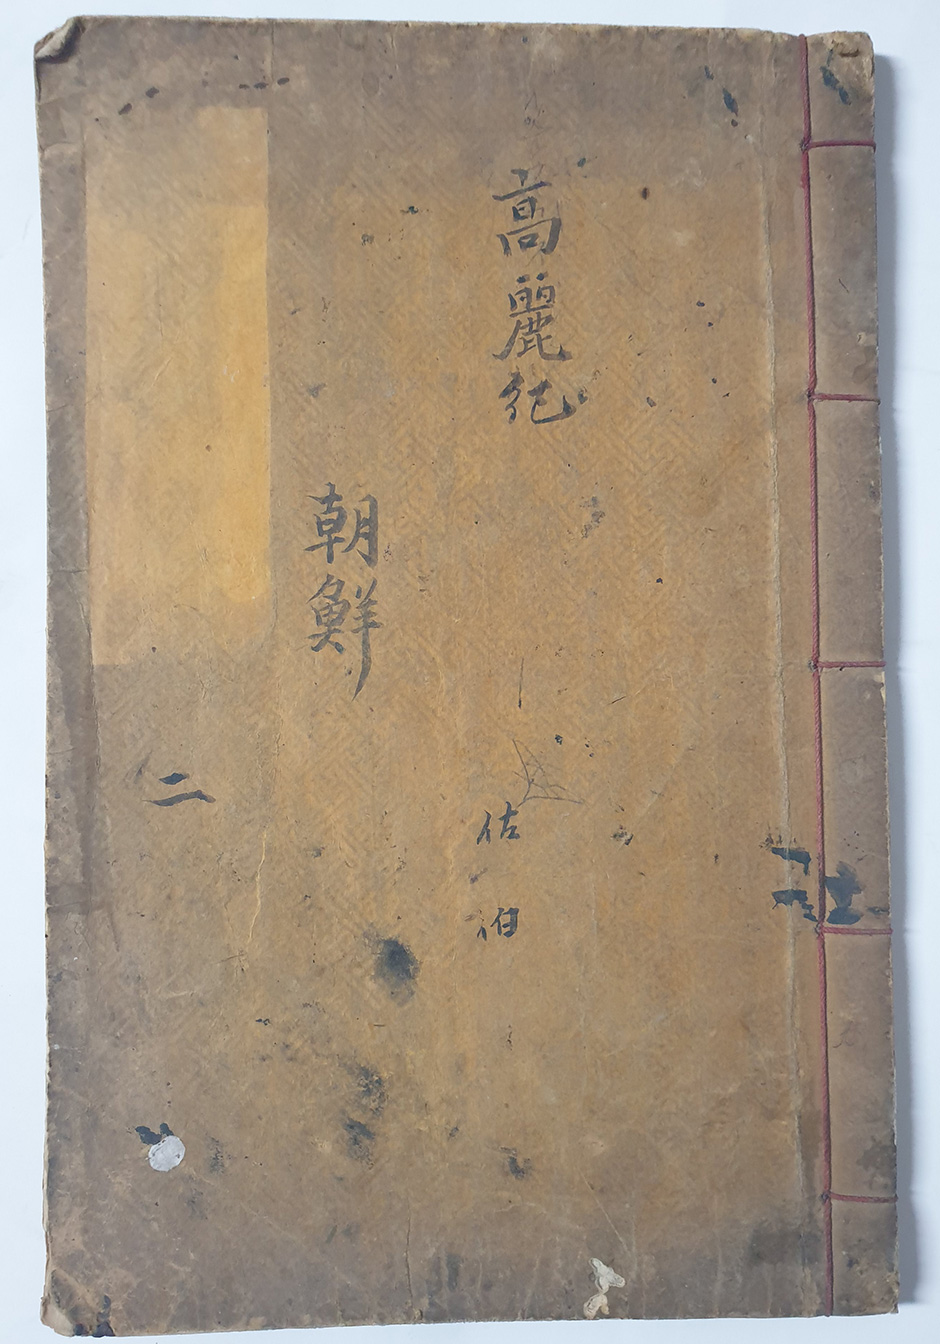 高麗紀
佐伯
朝鮮
二